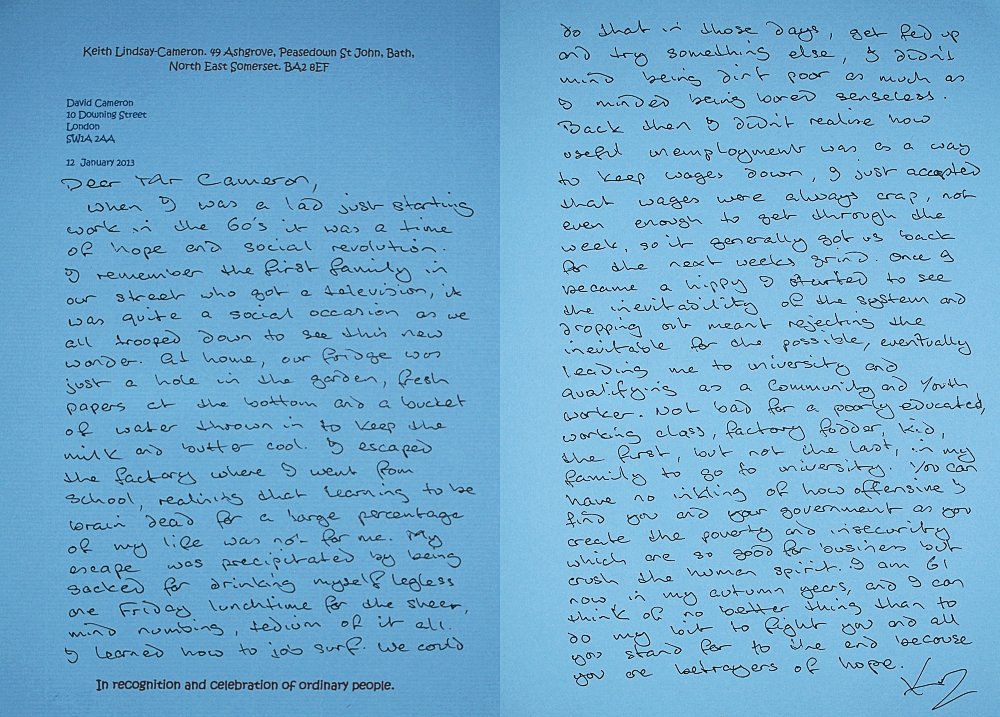 Keith Lindsay-Cameron. 49 Ashgrove, Peasedown St John, Bath,
North East Somerset. BA2 8EF
David Cameron
10 Downing Street
London
SW1A 2AA
12 January 2013
Dear Mr Cameron,
When I was a lad just starting
work in the 60's it was a time
of hope and social revolution.
I remember the first family in
our street who got a television, it
was quite a social occasion as we
all trooped down to see this new
wonder. At home, our fridge was
just a hole in the garden, fresh
papers at the bottom and a bucket
of water thrown in to keep the
milk and butter cool. I escaped
the factory where I went from
school, realising that learning to be
brain dead for a large percentage
of my life was not for me. My
escape was precipitated by being
sacked for drinking myself legless
one Friday lunchtime for the sheer,
mind numbing, tedium of it all.
I learned how to job surf. We could
In recognition and celebration of ordinary people.
do that in those days, get fed up
and try something else, I didn't
mind being dirt poor as much as
I minded being bored senseless.
Back then I didn't realise how
useful unemployment was as a way
to keep wages down, I just accepted
that wages were always crap, not
even enough to get through the
week, so it generally got us back
for the next weeks grind. Once I
became a hippy I started to see
the inevitability of the system and
dropping out meant rejecting the
inevitable for the possible, eventually
leading me to university and
qualifying as a Community and Youth
worker. Not bad for a poorly educated,
working class, factory fodder, kid,
the first, but not the last, in my
family to go to university. You can
have no inkling of how offensive I
find you and your government as you
create the poverty and insecurity
which are so good for business but
crush the human spirit. I am 61
now in my autumn years, and I can
think of no better thing than to
do my bit to fight you and all
you stand for to the end because
you are betrayers of hope.